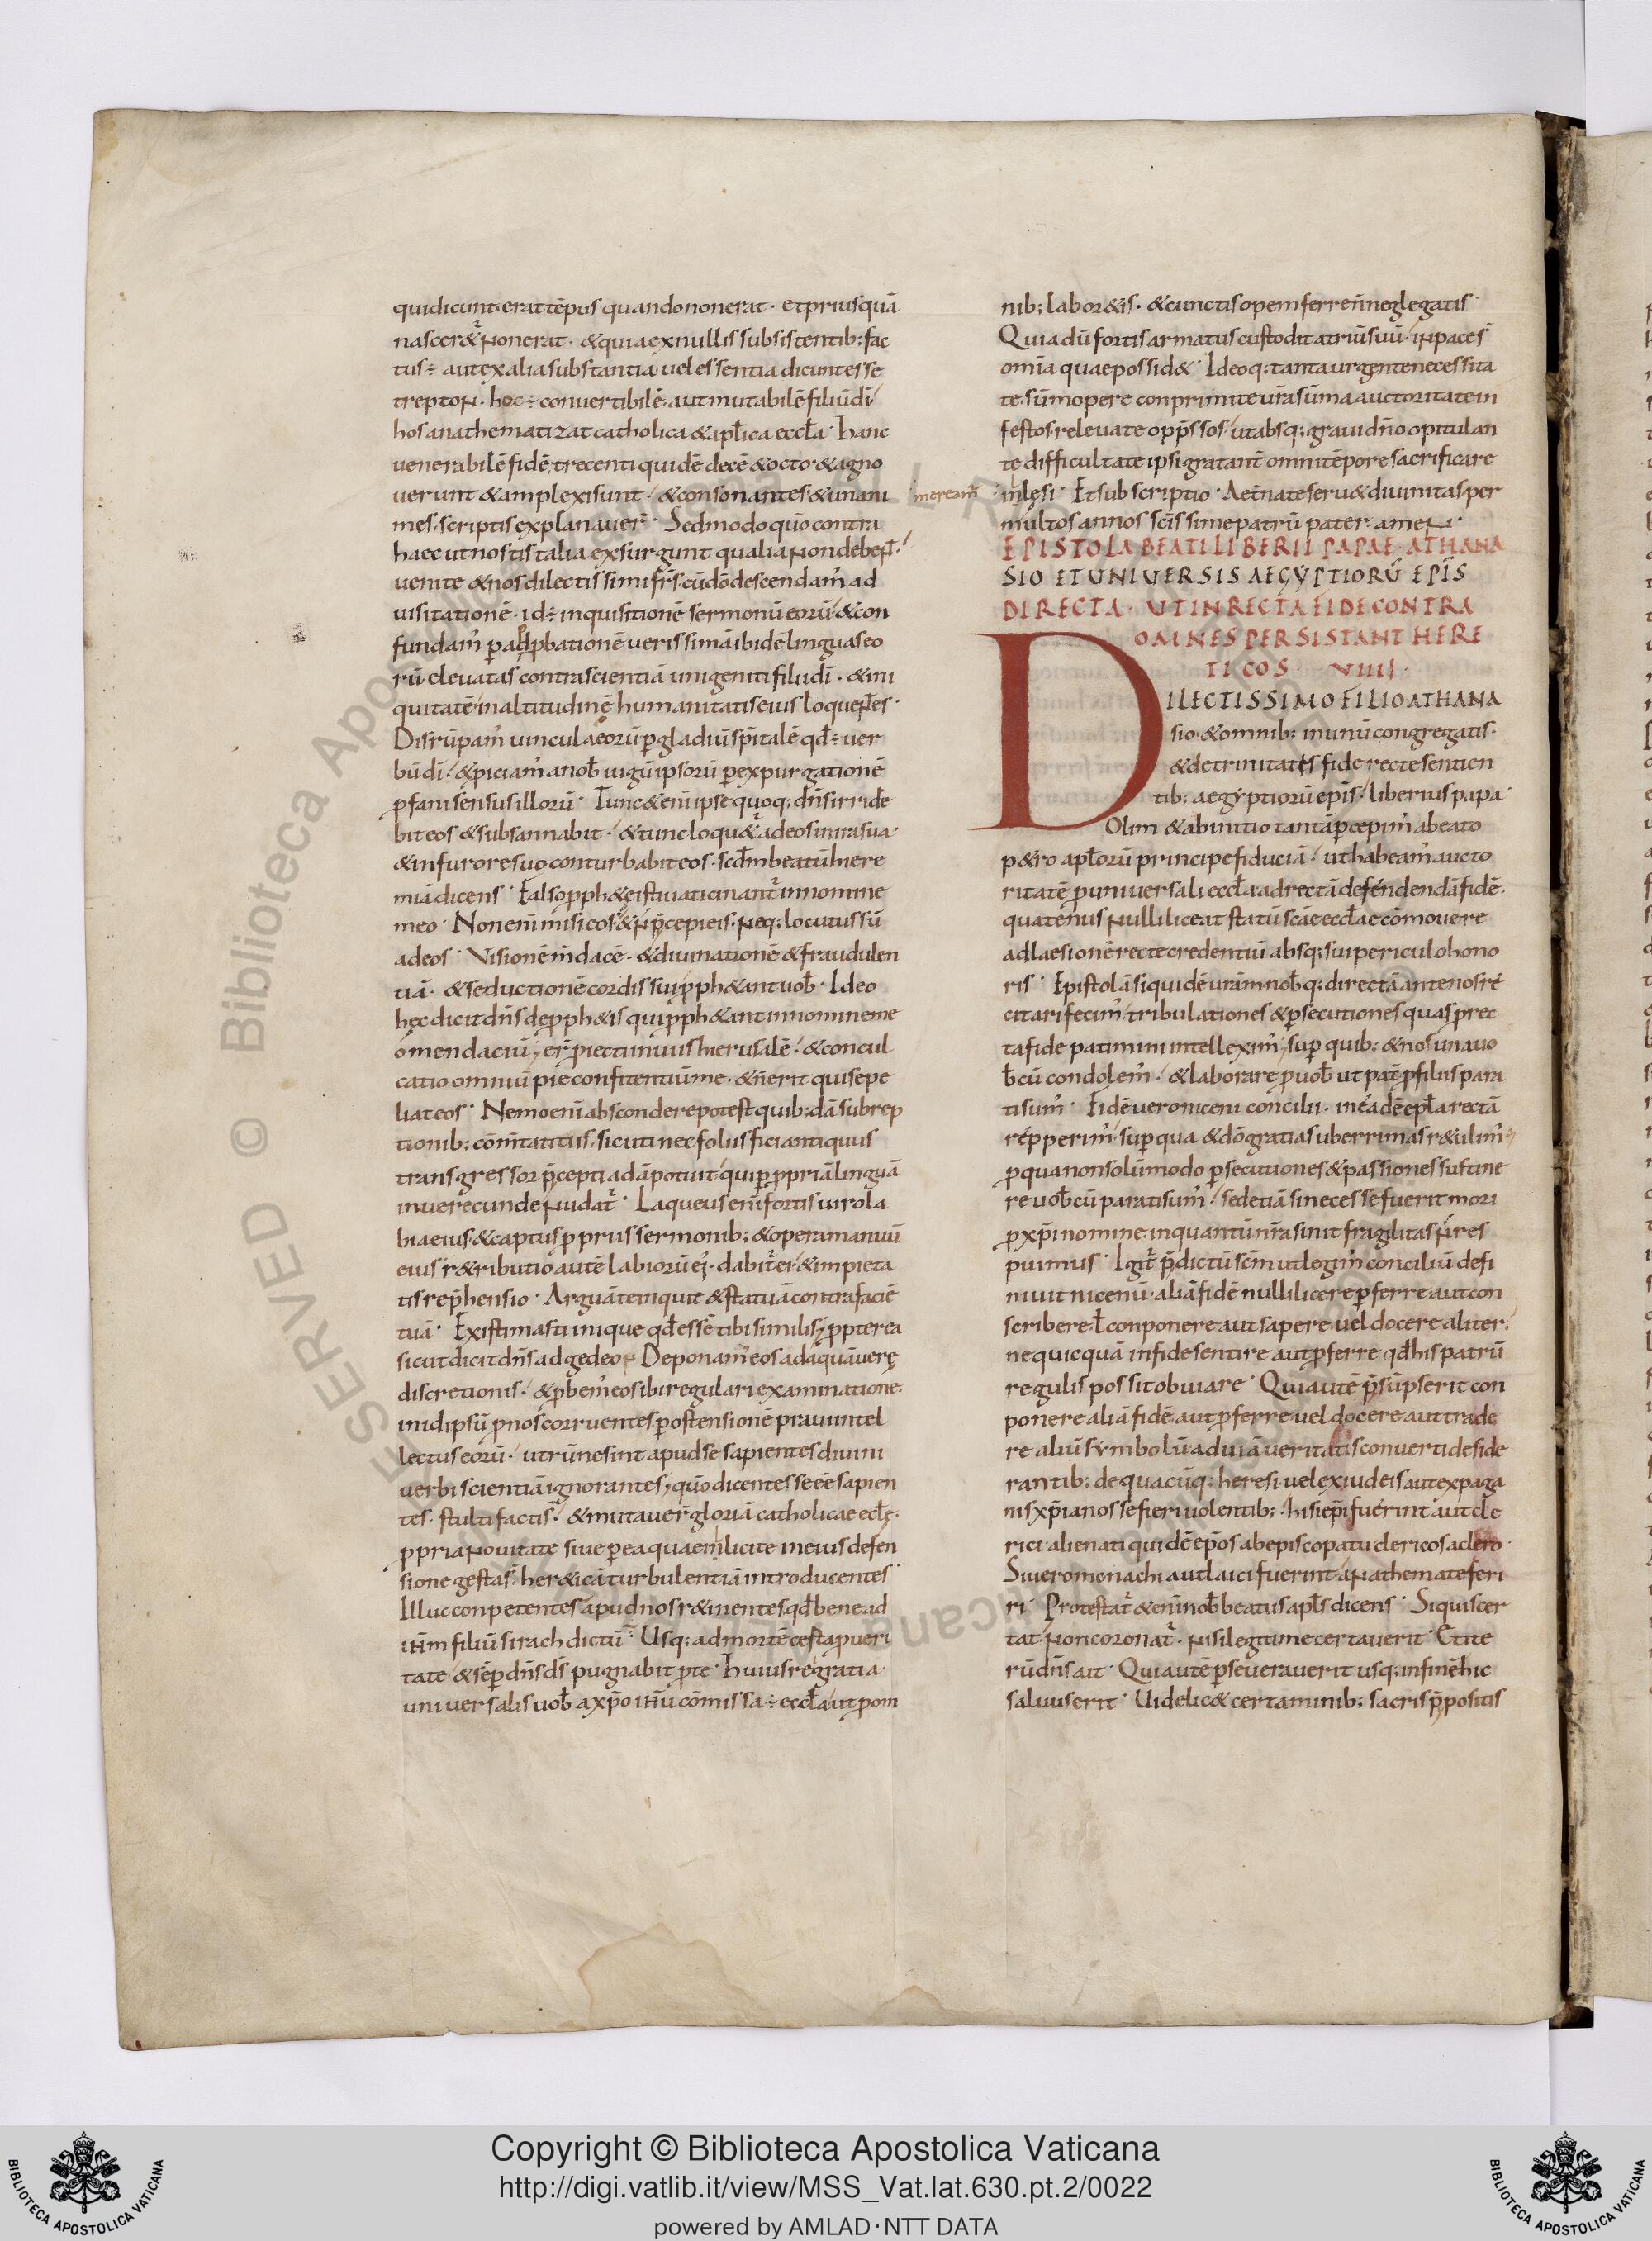 qui dicunt erat tēpus quando non erat · et priusquā
nascer&ur non erat · & quia ex nullis subsistentib; fac
tus ÷ aut ex alia substantia uel essentia dicuntes se
trepton · hoc ÷ conuertibilē aut mutabilē filiū dī
hos anathematizat catholica & apl̄ica eccl̄a · hanc
uenerabilē fidē trecenti quidē decē & octo & agno
uerunt & amplexi sunt · & consonantes & unani
mes · scriptis explanauer̄ · Sed modo quō contra
haec ut nostis talia exsurgunt qualia non debent ·
uenite & nos dilectissimi fr̄s cū dō descendam' ad
uisitationē · id ÷ inquisitionē sermonū eorū & con
fundam' p adpbationē uerissimā ibidē linguas eo
rū eleuatas contra scientiā unigeniti filii dī · & ini
quitatē in altitudinē humanitatis eius loquentes ·
Disrūpam' uincula eorū p gladiū sp̄italē qd̄ ÷ uer
bū dī · & piciam' a nob̄ iugū ipsorū p expurgationē
pfani sensus illorū · Tunc & enī ipse quoq; dn̄s irride
bit eos & subsannabit · & tunc loqu&ur ad eos in ira sua ·
& in furore suo conturbabit eos · scd̄m beatū hiere
miā dicens · Falso pph&e isti uaticinant̄ in nomine
meo · Non enī misi eos & n̄ p̄cepi eis · neq; locutus sū
ad eos · Visionē m̄dacē · & diuinationē & fraudulen
tiā · & seductionē cordis sui pph&ant uob̄ · Ideo
hęc dicit dn̄s de pph&is qui pph&ant in nomine me
o mendaciū; er̄ piecti in uiis hierusalē · & concul
catio omniū pie confitentiū me · & n̄ erit qui sepe
liat eos · Nemo enī abscondere potest quib; dā subrep
tionib; cōm̄tatitus · sicuti nec foliis ficī antiquus
transgressor p̄cepti adā potuit qui p ppriā linguā
inuerecunde nudat̄ · Laqueus enī fortis uiro la
bia eius & captus ppriis sermonib; & opera manuū
eius r&ributio autē labiorū ei · dabit̄ ei & impieta
tis rep̄hensio · Arguā te inquit & statuā contra faciē
tuā · Existimasti inique qd̄ essē tibi similis; ppterea
sicut dicit dn̄s ad gedeon Deponam' eos ad aquā uerę
discretionis · & pbem' eos ibi regulari examinatione ·
in id ipsū p nos corruentes p ostensionē praui intel
lectus eorū · utrū ne sint apud se sapientes diuini
uerbi scientiā ignorantes; quō dicentes se eē sapien
tes · stulti facti s̄ · & mutauer̄ gloriā catholicae eccl̄ę ·
ppria nouitate siue p ea quae inlicite in eius defen
sione gestas · her&icā turbulentiā introducentes ·
Illuc conpetentes apud nos r&inentes qd̄ bene ad
iHm filiū sirach dictū ÷ · Usq; ad mortē certa p ueri
tate & sēp dn̄s ds̄ pugnabit p te · huius rei gratia ·
uniuersalis uob̄ a xp̄o iHū cōmissa ÷ eccl̄a ut p om
mereamr̄
nib; labor&is · & cunctis opem ferre n̄ neglegatis ·
Quia dū fortis armatus custodit atriū suū · in pace s̄
omia quae possid& · Ideoq; tanta urgente necessita
te · sūmopere conprimite ur̄a sūma auctoritate in
festos · releuate opp̄ssos · ut absq; graui dn̄o opitulan
te difficultate ipsi gratant̄ omni tēpore sacrificare
inlęsi · Et subscriptio · Aet̄na te seru& diuinitas per
multos annos sc̄issime patrū pater · amen ·
EPISTOLA BEATI LIBERII PAPAE · ATHANA
SIO ET UNIVERSIS AEGYPTIORŪ EPĪS
DIRECTA · UT IN RECTA FIDE CONTRA
OMNES PERSISTANT HERE
TICOS · VIIII ·
DILECTISSIMO FILIO ATHANA
sio · & omnib; in unū congregatis ·
& de trinitatis fide recte sentien
tib; aegyptiorū epīs · liberius papa ·
Olim & ab initio tantā pcepim' a beato
p&ro apl̄orū principe fiduciā · ut habeam' aucto
ritatē p uniuersali eccl̄a ad rectā defendendā fidē ·
quatenus nulli liceat statū sc̄ae eccl̄ae cōmouere
ad laesionē recte credentiū absq; sui periculo hono
ris · Epistolā siquidē ur̄am nob̄ q; directā ante nos re
citari fecim' tribulationes & psecutiones quas p rec
ta fide patimini intellexim'; sup quib; & nos una uo
b̄cū condolem' · & laborare p uob̄ ut pat̄ p filiis para
ti sum' · Fidē uero niceni concilii · in eadē epl̄a rectā
repperim' sup qua & dō gratias uberrimas r&ulim' ·
p qua non solū modo psecutiones & passiones sustine
re uob̄cū parati sum' · sed etiā si necesse fuerit mori
p xp̄i nomine in quantū nr̄a sinit fragilitas n̄ res
puimus · Igit̄ p̄dictū sc̄m ut legim' conciliū defi
niuit nicenū · aliā fidē nulli licere pferre aut con
scribere · l̄ conponere aut sapere uel docere aliter ·
ne quicquā in fide sentire aut pferre qd̄ his patrū
regulis possit obuiare · Qui autē p̄sūpserit con
ponere aliā fidē aut pferre uel docere aut trade
re aliū symbolū ad uiā ueritatis conuerti deside
rantib; de quacūq; heresi uel ex iudeis aut ex paga
nis xp̄ianos se fieri uolentib; · hi si epī fuerint aut cle
rici · alienati quidē ep̄os ab episcopatu clericos a clero ·
Si uero monachi aut laici fuerint anathemate feri
ri · Protestat̄ & enī nob̄ beatus apl̄s dicens · Si quis cer
tat · non coronat̄ · nisi legitime certauerit · Et ite
rū dn̄s ait · Qui autē pseuerauerit usq; in finē hic
saluus erit · Uidelic& certaminib; sacris p̄positis
Copyright © Biblioteca Apostolica Vaticana
http://digi.vatlib.it/view/MSS_Vat.lat.630.pt.2/0022
powered by AMLAD·NTT DATA
BIBLIOTECA APOSTOLICA VATICANA
BIBLIOTECA APOSTOLICA VATICANA